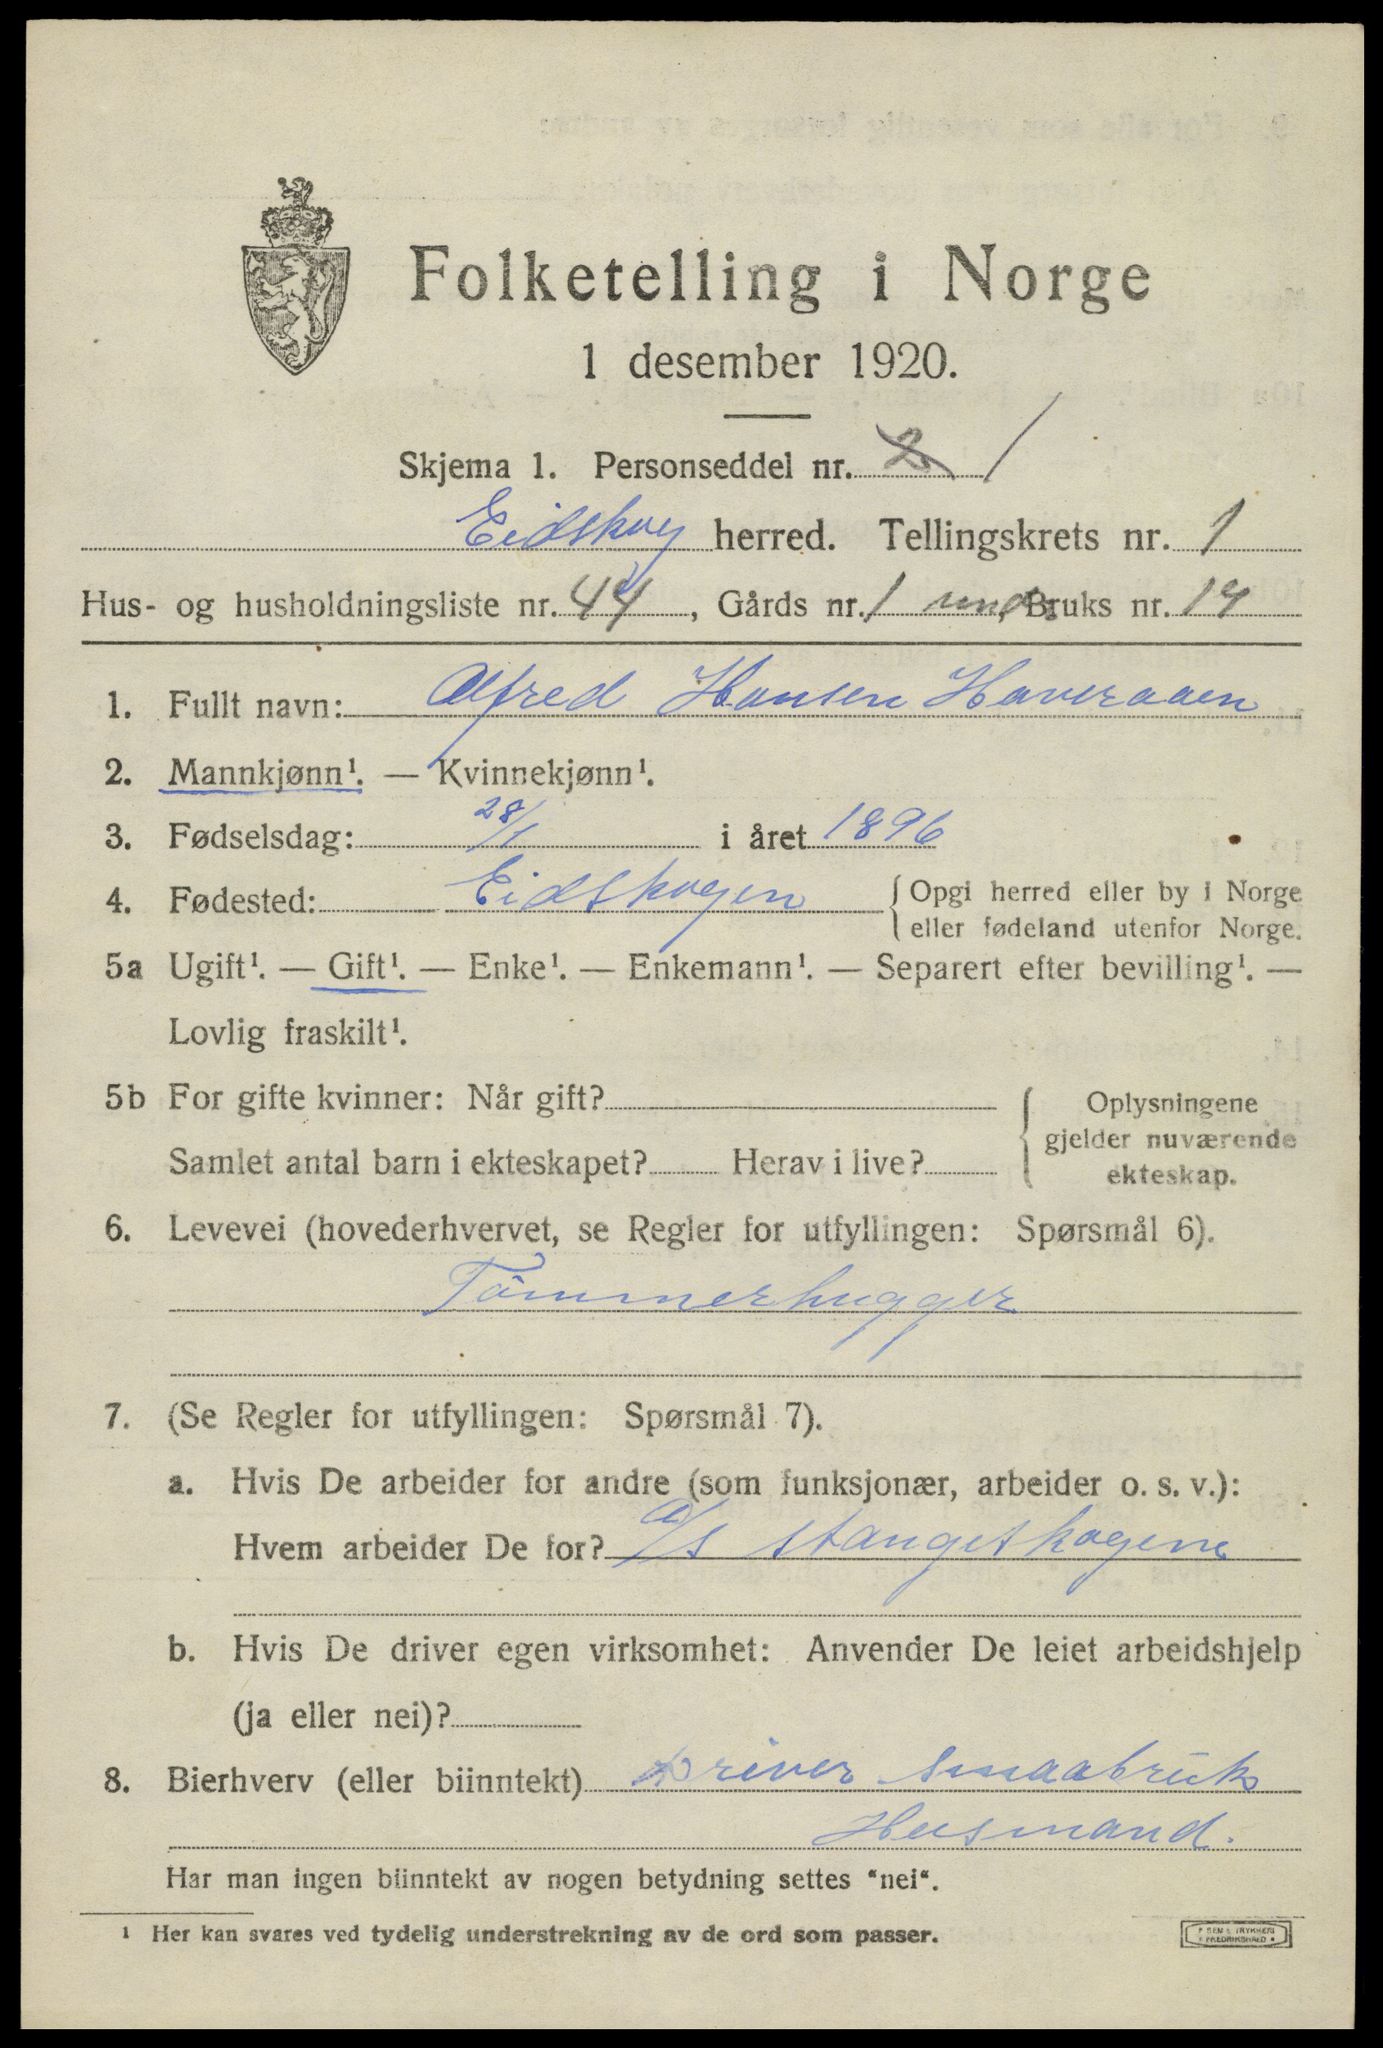 Folketelling i Norge
1 desember 1920.
Skjema 1. Personseddel nr. 2 1
Eidskog herred. Tellingskrets nr. 1
Hus- og husholdningsliste nr. 44, Gårds nr. 1 und. Bruks nr. 14
1. Fullt navn: Alfred Hansen Haveraaen
2. Mannkjønn¹. — Kvinnekjønn¹.
3. Fødselsdag: 28/1 i året 1896
4. Fødested: Eidskogen { Opgi herred eller by i Norge
eller fødeland utenfor Norge.
5a Ugift¹. — Gift¹. — Enke¹. — Enkemann¹. — Separert efter bevilling¹. —
Lovlig fraskilt¹.
5b For gifte kvinner: Når gift? { Oplysningene
gjelder nuværende
Samlet antal barn i ekteskapet? Herav i live?
ekteskap.
6. Levevei (hovederhvervet, se Regler for utfyllingen: Spørsmål 6).
Tømmerhugger
7. (Se Regler for utfyllingen: Spørsmål 7).
a. Hvis De arbeider for andre (som funksjonær, arbeider o. s. v.):
Hvem arbeider De for? A/S Stangeskogene
b. Hvis De driver egen virksomhet: Anvender De leiet arbeidshjelp
(ja eller nei)?
8. Bierhverv (eller biinntekt) Driver smaabruk
Husmand.
Har man ingen biinntekt av nogen betydning settes "nei".
¹ Her kan svares ved tydelig understrekning av de ord som passer.